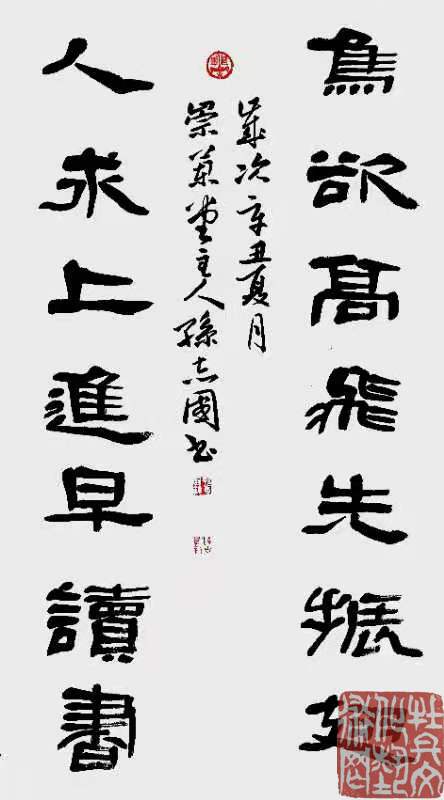 鳥欲高飛先振翅
歲次辛丑夏月
堂主人孫志國書
人求上進早讀書